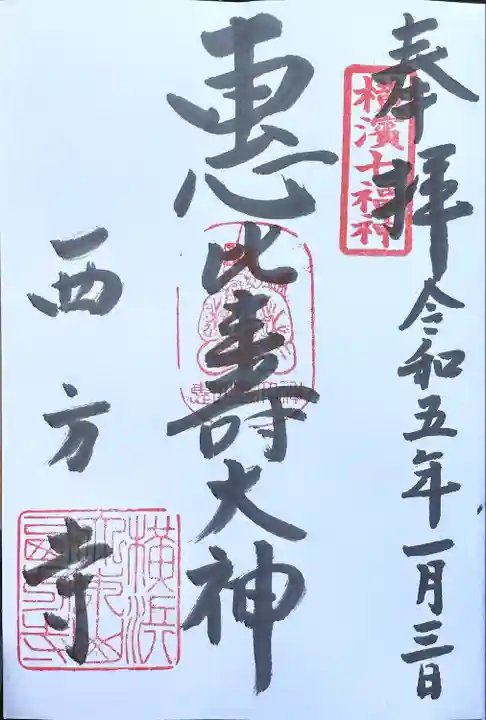 奉拝
横濱七福神
令和五年一月三日
恵比寿大神
西方寺
横浜